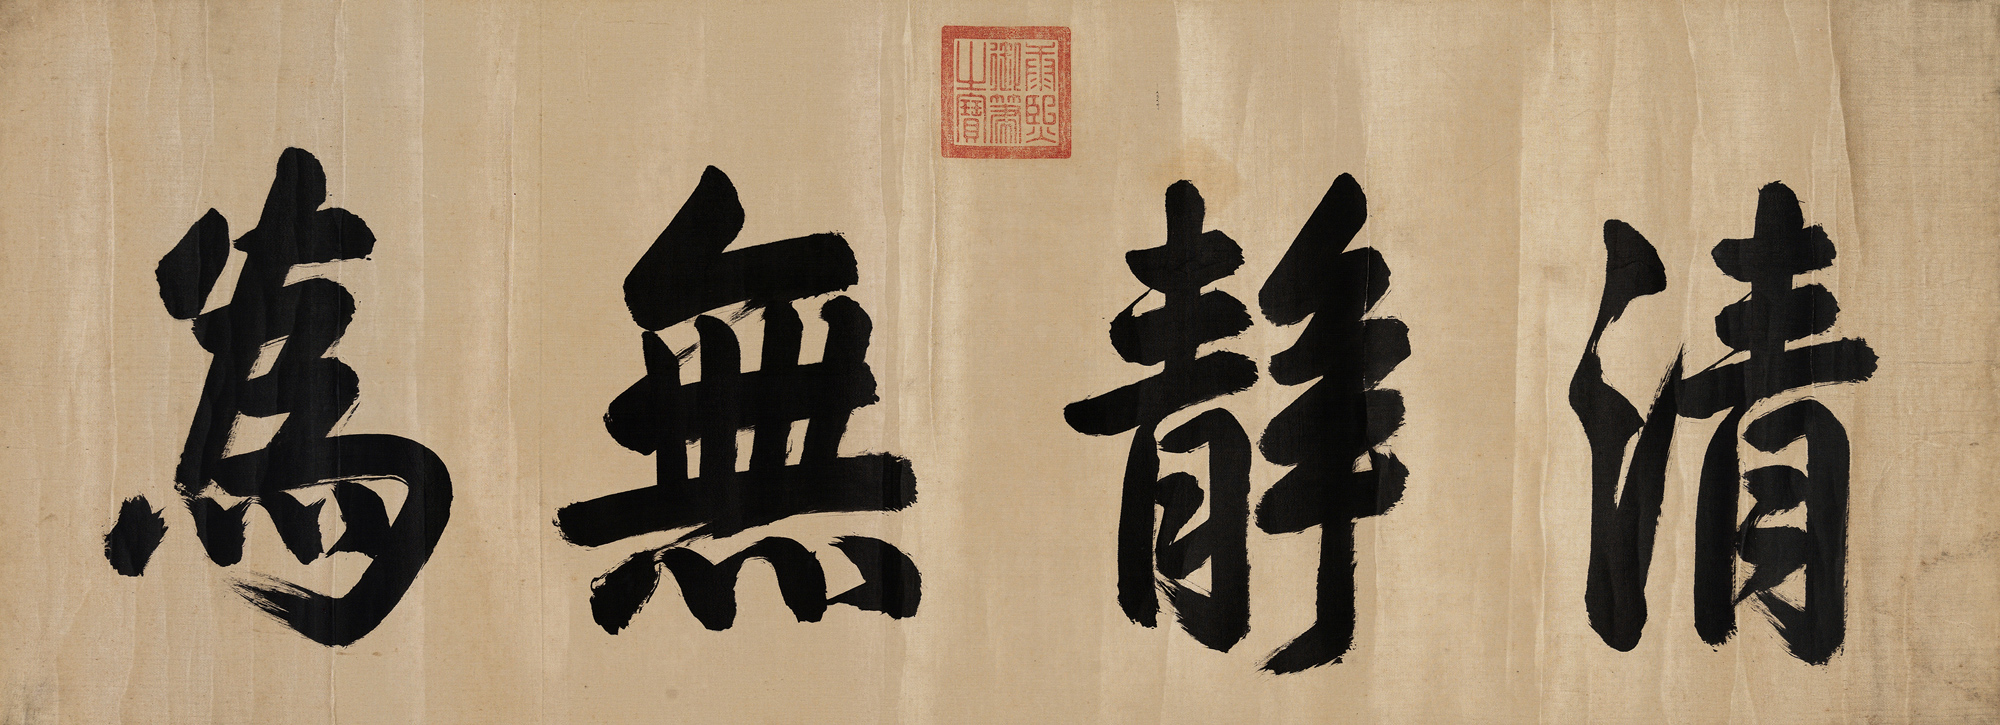 清靜無為
康熙御筆之寶